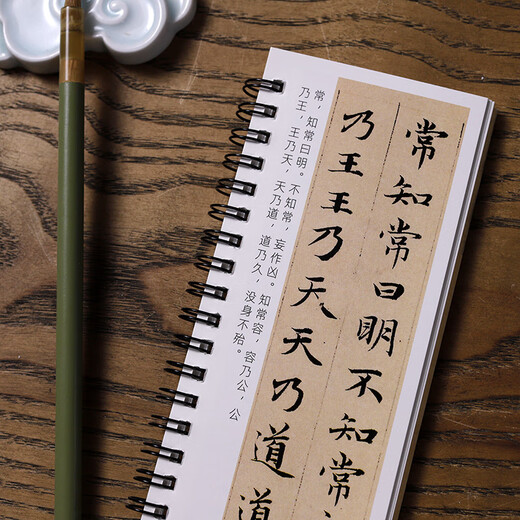 常知常曰明不知常
乃王王乃天天乃道道
常，知常曰明。不知常，妄作凶。知常容，容乃公，公
乃王，王乃天，天乃道，道乃久，没身不殆。